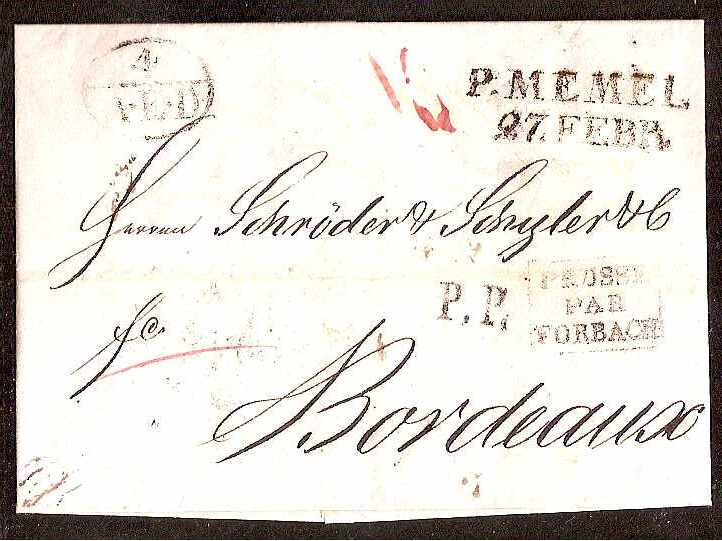 4
P. MEMEL
27. FEBR.
Herren Schröder & Schyler & C
P. P.
PRUSSE
PAR
FORBACH
fco
Bordeaux